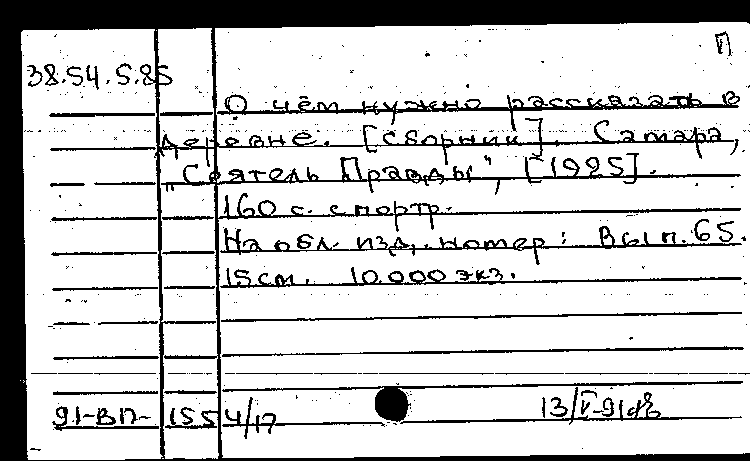 П
38.54.5.85
О чём нужно рассказать в
деревне. [Сборник]. Самара,
„Сеятель Правды", [1925].
160 с. с портр.
На обл. изд. номер: Вып. 65.
15 см. 10.000 экз.
91-ВП-1554/17
13/V-91